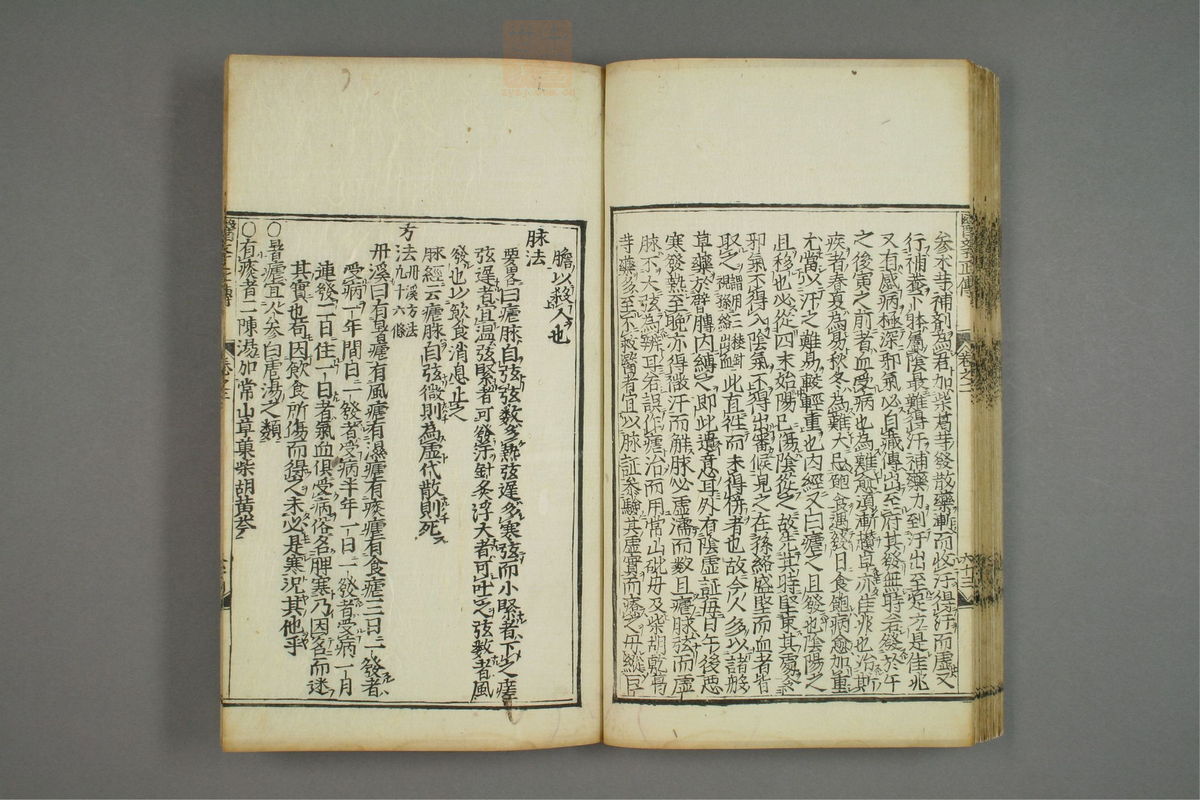 參朮等補劑爲君加柴葛等發散藥漸而收汗得汗而虛又
行補養下體屬陰最難得汗補藥力到汗出至足方是佳兆
又有感病極深邪氣必自臟傳出至府其發無時若發於午
之後寅之前者血受病也爲難愈須漸趲早亦佳兆也治斯
疾者春夏爲易秋冬爲難大忌飽食遇發日食飽病愈加重
尤當以汗之難易較輕重也內經又曰瘧之且發也陰陽之
且移也必從四末始陽已傷陰從之故先其時堅束其處令
邪氣不得入陰氣不得出審候見之在孫絡盛堅而血者皆
取之謂用三稜針視孫絡出血此直徃而未得併者也故今人多以諸般
草藥於臂膊內縛之即此遺意耳外有陰虛証每日午後惡
寒發熱至晚亦得微汗而解脉必虛濡而數且瘧脉弦而虛
脉不大弦爲辨耳若誤作瘧治而用常山砒毋及柴胡乾葛
等藥多至不救醫者宜以脉証參驗其虛實而療之毋縱巨
醫學正傳
卷之二
六十二
膽以殺人也
脉法
要畧曰瘧脉自弦弦數多熱弦遲多寒弦而小緊者下之瘥
弦遲者宜溫弦緊者可發汗針灸浮大者可吐之弦數者風
發也以飲食消息止之
脉經云瘧脉自弦微則爲虛代散則死
方法丹溪方法九十六條
丹溪曰有暑瘧有風瘧有濕瘧有痰瘧有食瘧三日一發者
受病一年間日一發者受病半年一日一發者受病一月
連發二日住一日者氣血俱受病俗名脾寒乃因名而迷
其實也苟因飲食所傷而得之未必是寒況其他乎
○暑瘧宜人參白虎湯之類
○有痰者二陳湯加常山草菓柴胡黃芩
醫學正傳
卷之二